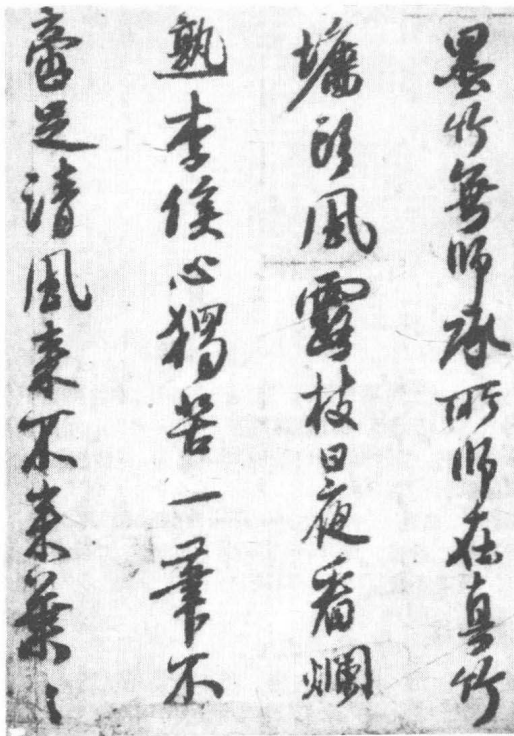 墨竹無師承所師在真竹
墻頭風露枝日夜看爛
熟李侯心獨苦一筆不
啻足清風来不来葉〻